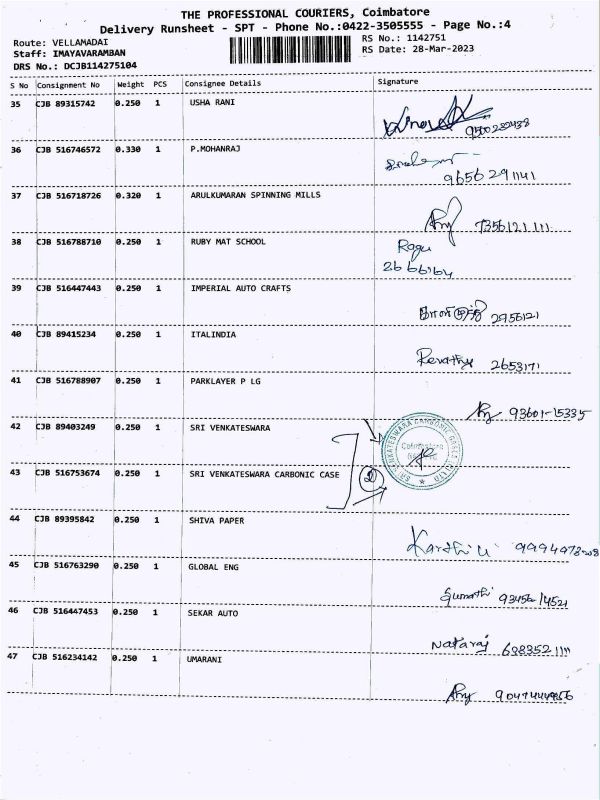 THE PROFESSIONAL COURIERS, Coimbatore
Delivery Runsheet - SPT - Phone No.:0422-3505555 - Page No.:4
Route: VELLAMADAI
RS No.: 1142751
Staff: IMAYAVARAMBAN
RS Date: 28-Mar-2023
DRS No.: DCJB114275104
S No Consignment No Weight PCS Consignee Details Signature
35 CJB 89315742 0.250 1 USHA RANI
36 CJB 516746572 0.330 1 P.MOHANRAJ
9656 291141
37 CJB 516718726 0.320 1 ARULKUMARAN SPINNING MILLS
7356121111
38 CJB 516788710 0.250 1 RUBY MAT SCHOOL
Ragu
2666164
39 CJB 516447443 0.250 1 IMPERIAL AUTO CRAFTS
2956121
40 CJB 89415234 0.250 1 ITALINDIA
Revathy 2653171
41 CJB 516788907 0.250 1 PARKLAYER P LG
93601-15335
42 CJB 89403249 0.250 1 SRI VENKATESWARA
43 CJB 516753674 0.250 1 SRI VENKATESWARA CARBONIC CASE
2
44 CJB 89395842 0.250 1 SHIVA PAPER
Karthi
45 CJB 516763290 0.250 1 GLOBAL ENG
Sumathi 93456-14521
46 CJB 516447453 0.250 1 SEKAR AUTO
Nataraj
47 CJB 516234142 0.250 1 UMARANI